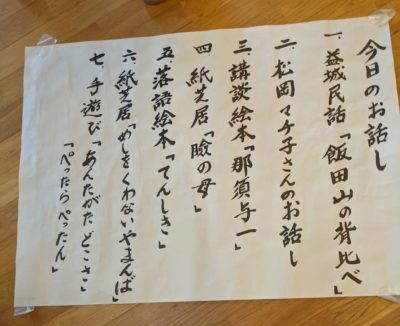 今日のお話し
一、益城民話「飯田山の背比べ」
二、松岡マケ子さんのお話し
三、講談絵本「那須与一」
四、紙芝居「瞼の母」
五、落語絵本「てんしき」
六、紙芝居「めしをくわないやまんば」
七、手遊び「あんたがたどこさ」
「ぺったらぺったん」